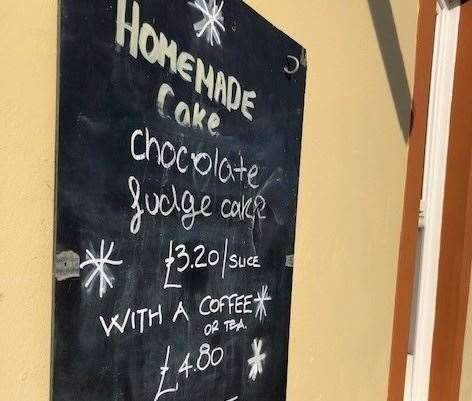 HOMEMADE
Cake
chocolate
fudge cake
£3.20/SLICE
WITH A COFFEE
OR TEA.
£4.80